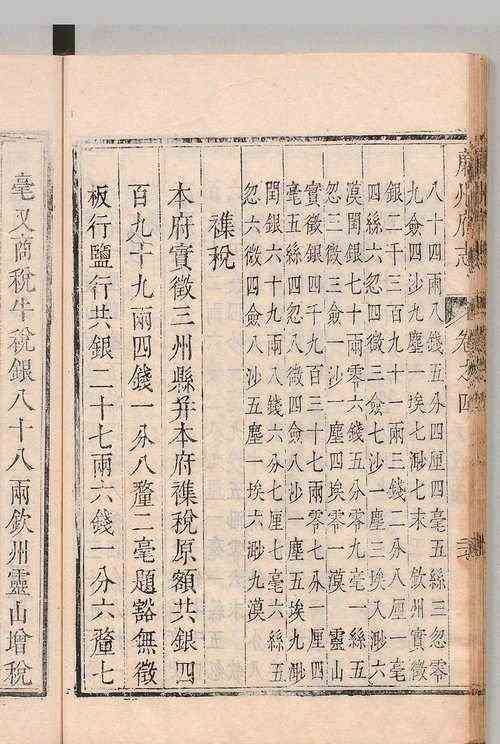 廉州府志 卷之四
八十四兩八錢五分四厘四毫五絲三忽零
九僉四沙九塵一埃七渺七末 欽州實徵
銀二千三百九十一兩三錢二分八厘一毫
四絲六忽四微三僉七沙一塵三埃入渺六
漠閏銀七十兩零六分零九毫一絲五
忽三微三僉一沙一塵四埃零一漠 靈山
實徵銀四千九百三十七兩零七分一厘四
毫五絲四忽八微四僉八沙一塵五埃九渺
閏銀六十九兩八分七厘七毫六絲五
忽六微四僉八沙五塵一埃六渺九漠
襍稅
本府實徵三州縣并本府襍稅原額共銀四
百九十九兩四錢一分八釐二毫題豁無徵
板行鹽行共銀二十七兩六錢一分六釐七
毫又商稅牛稅銀八十八兩欽州靈山增稅